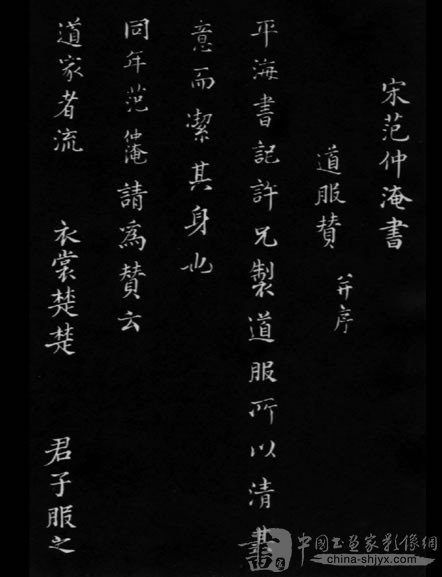 宋范仲淹書
道服贊 并序
平海書記許兄製道服所以清其
意而潔其身也
同年范仲淹請為贊云
道家者流 衣裳楚楚 君子服之
中国书画家影像網
china-shjyx.com